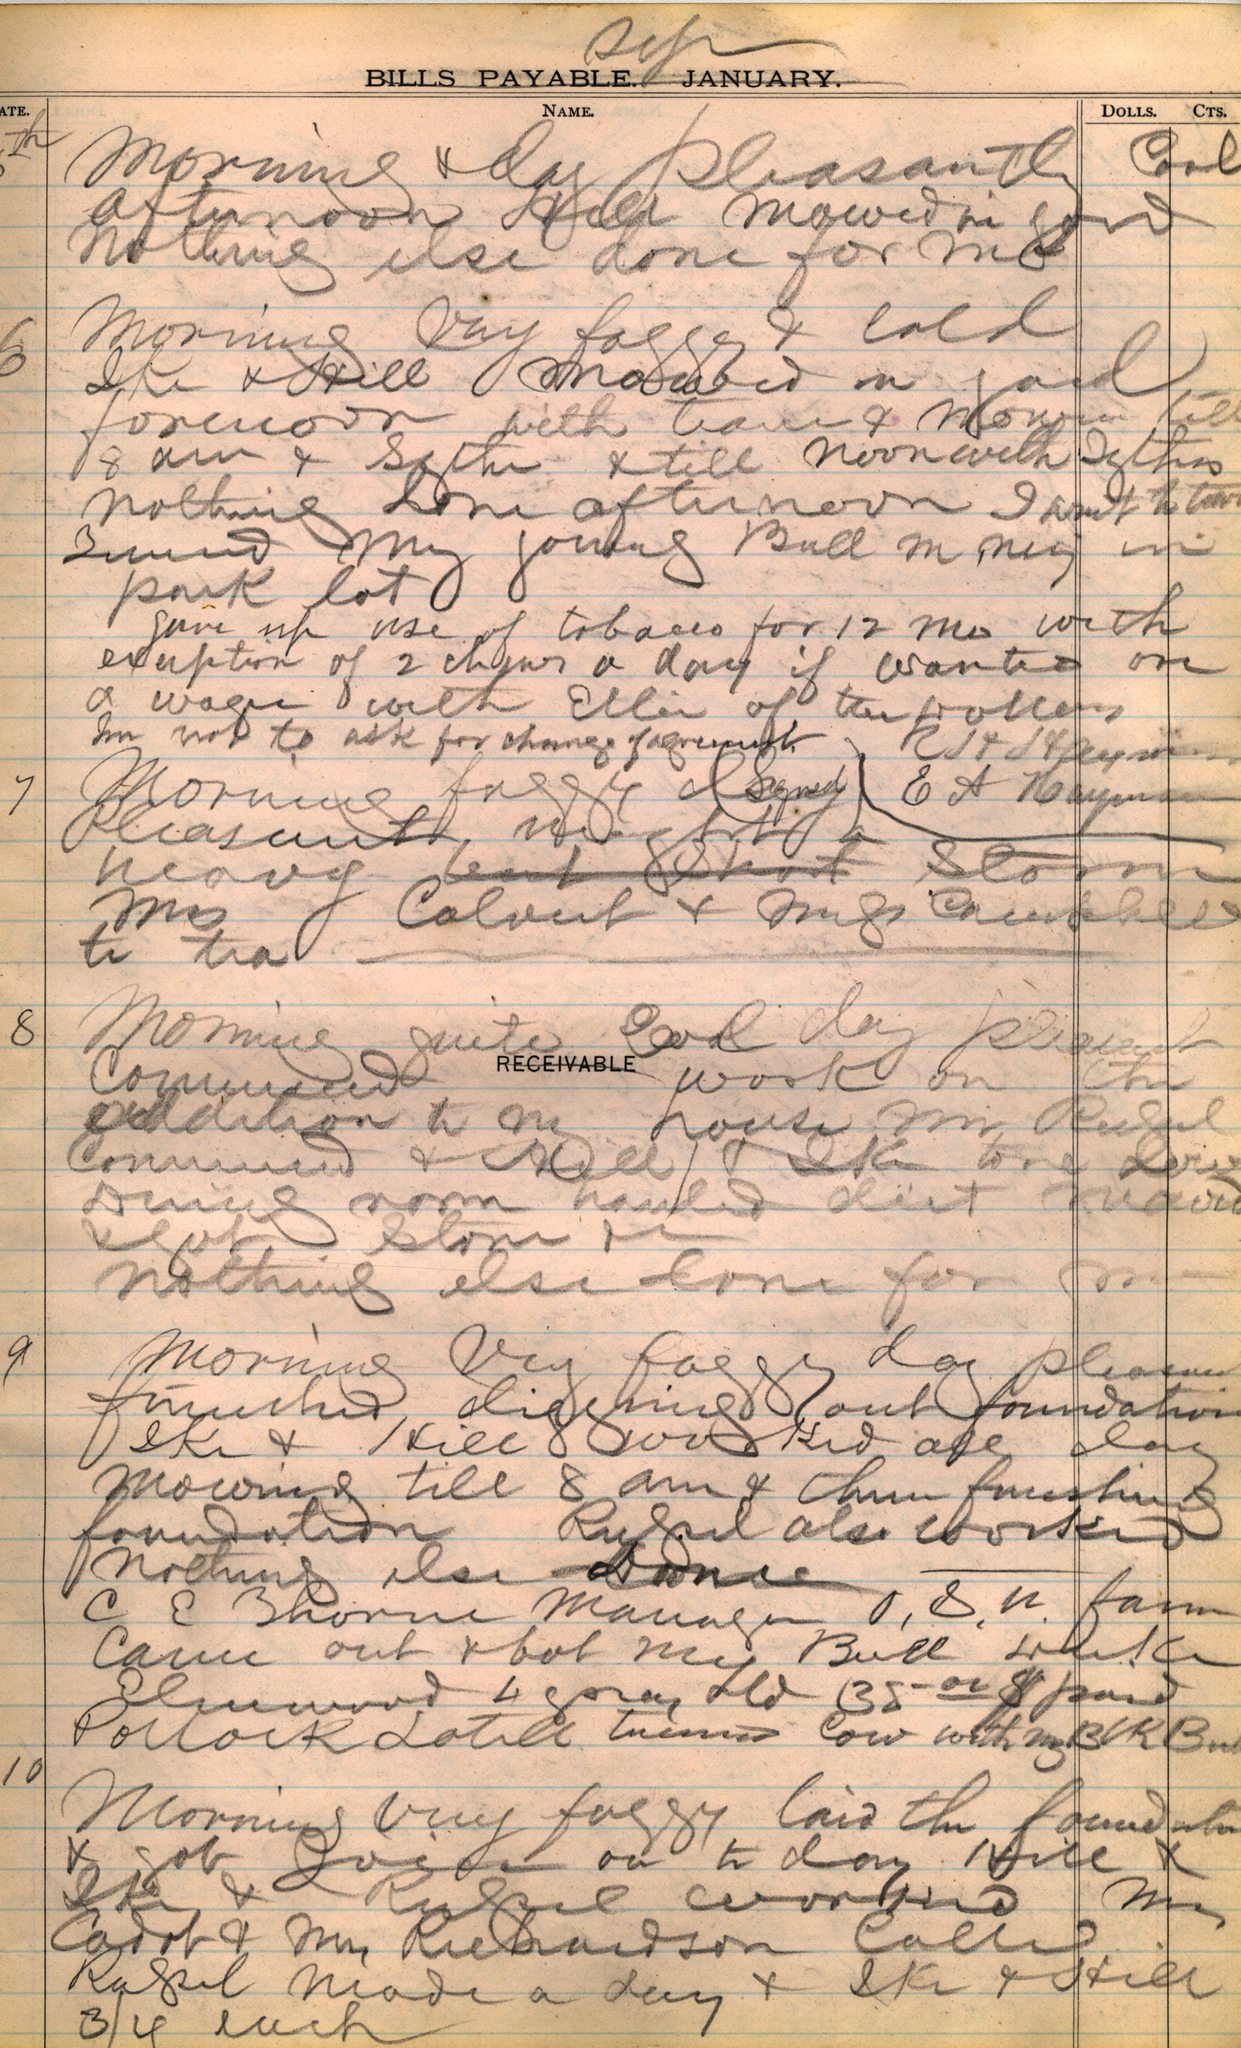 Sep
BILLS PAYABLE. JANUARY.
ATE. NAME. DOLLS. CTS.
5th Morning & day pleasantly Cool
afternoon Hill mowed in yard
Nothing else done for me
6 Morning Very foggy & cold
Ike & Hill Mowed in yard
forenoon with team & mower till
8 am & Sythe & till Noon with Sythes
Nothing done afternoon I went to town
Turned My young Bull in
park lot
gave up use of tobacco for 12 mo with
exception of 2 chews a day if wanted on
a wager with Ellie of ten dollars
Im not to ask for change of agreement R H Hayman
7 Morning foggy (Signed) E A Hayman
Pleasant, night a
heavy but short Storm
Mrs Calvert & Mrs Campbell
to tea
8 Morning quite Cool day pleasent
RECEIVABLE
Commenced work on the
addition to my house Mr Rupel
Commenced & Hill & Ike tore down
Dining room hauled dirt
& got Stone &c
Nothing else done for me
9 Morning Very foggy day pleasant
finished digging out foundation
Ike & Hill worked all day
Mowing till 8 am & then finishing
foundation Rupel also worked
Nothing else Done
C E Thorne Manager O, S, U. farm
Came out & bot my Bull
Elmwood 4 years old 135 00 $ paid
Pollock turned Cow with my Blk Bull
10 Morning very foggy laid the foundation
& got on to day Hill &
Ike & Rupel worked Mrs
Cadot & Mrs Richardson Called
Rupel made a day & Ike & Hill
3/4 each